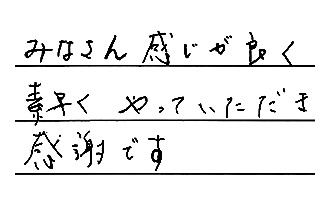 みなさん感じが良く
素早くやっていただき
感謝です